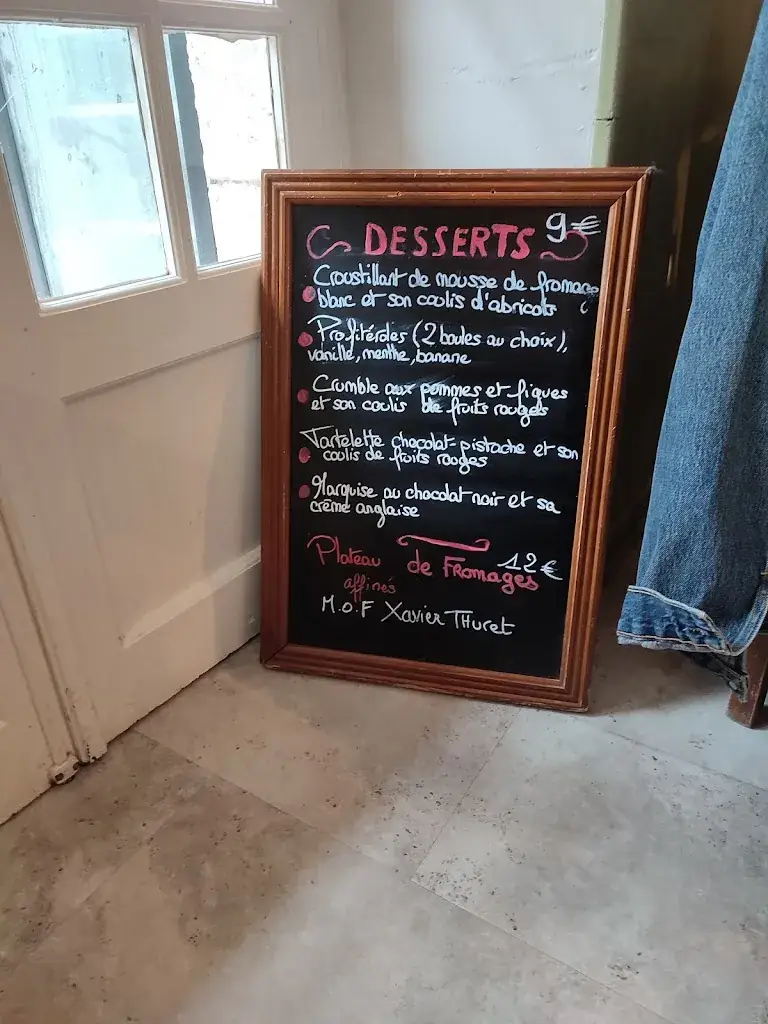 DESSERTS 9€
Croustillant de mousse de fromage
blanc et son coulis d'abricots
Profiteroles (2 boules au choix),
vanille, menthe, banane
Crumble aux pommes et figues
et son coulis de fruits rouges
Tartelette chocolat-pistache et son
coulis de fruits rouges
Marquise au chocolat noir et sa
crème anglaise
Plateau de Fromages 12€
affinés
M.O.F Xavier THuret